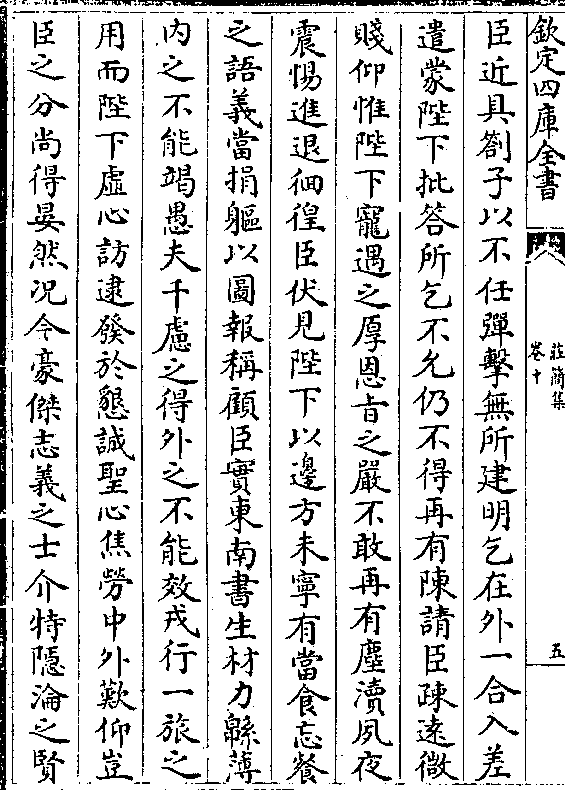 欽定四庫全書
莊簡集
卷十
五
臣近具劄子以不任彈擊無所建明乞在外一合入差
遣蒙陛下批答所乞不允仍不得再有陳請臣疎遠微
賤仰惟陛下寵遇之厚恩㫖之嚴不敢再有塵瀆夙夜
震惕進退徊徨臣伏見陛下以邊方未寧有當食忘餐
之語義當捐軀以圖報稱顧臣實東南書生材力緜薄
内之不能竭愚夫千慮之得外之不能效戎行一旅之
用而陛下虛心訪逮發於懇誠聖心焦勞中外歎仰豈
臣之分尚得晏然况今豪傑志義之士介特隱淪之賢